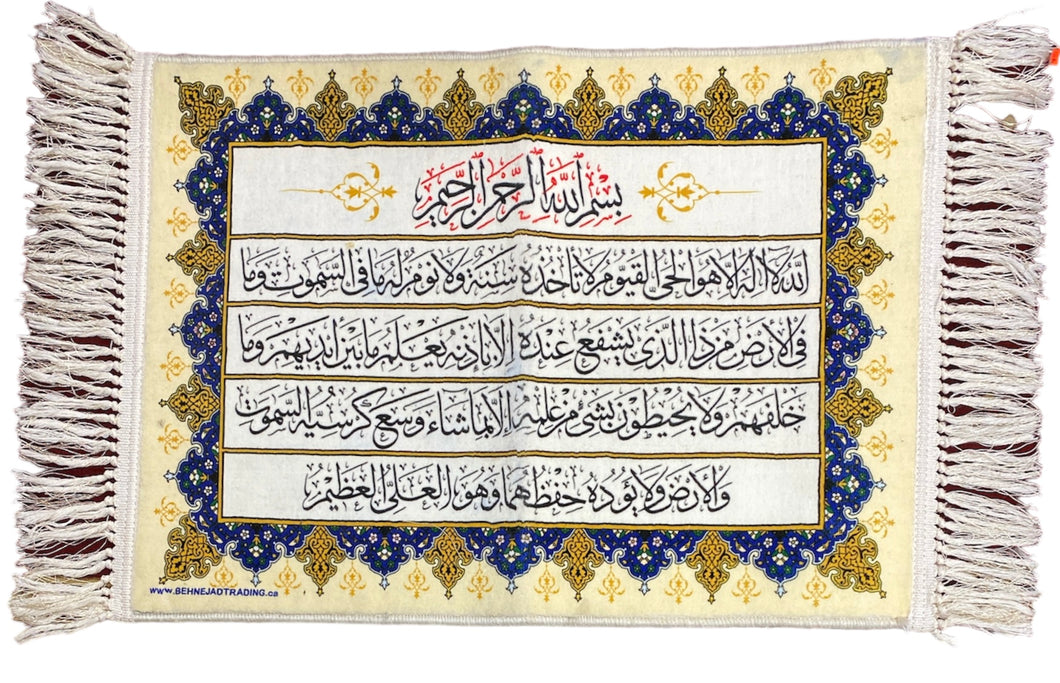 بِسْمِ اللهِ الرَّحْمٰنِ الرَّحِيمِ
اللّٰهُ لَا إِلٰهَ إِلَّا هُوَ الْحَيُّ الْقَيُّومُ لَا تَأْخُذُهُ سِنَةٌ وَلَا نَوْمٌ لَهُ مَا فِى السَّمٰوٰتِ وَمَا
فِى الْأَرْضِ مَنْ ذَا الَّذِى يَشْفَعُ عِنْدَهُ إِلَّا بِإِذْنِهِ يَعْلَمُ مَا بَيْنَ أَيْدِيهِمْ وَمَا
خَلْفَهُمْ وَلَا يُحِيطُونَ بِشَىْءٍ مِنْ عِلْمِهِ إِلَّا بِمَا شَاءَ وَسِعَ كُرْسِيُّهُ السَّمٰوٰتِ
وَالْأَرْضَ وَلَا يَؤُدُهُ حِفْظُهُمَا وَهُوَ الْعَلِىُّ الْعَظِيمُ
www.BEHNEJADTRADING.ca